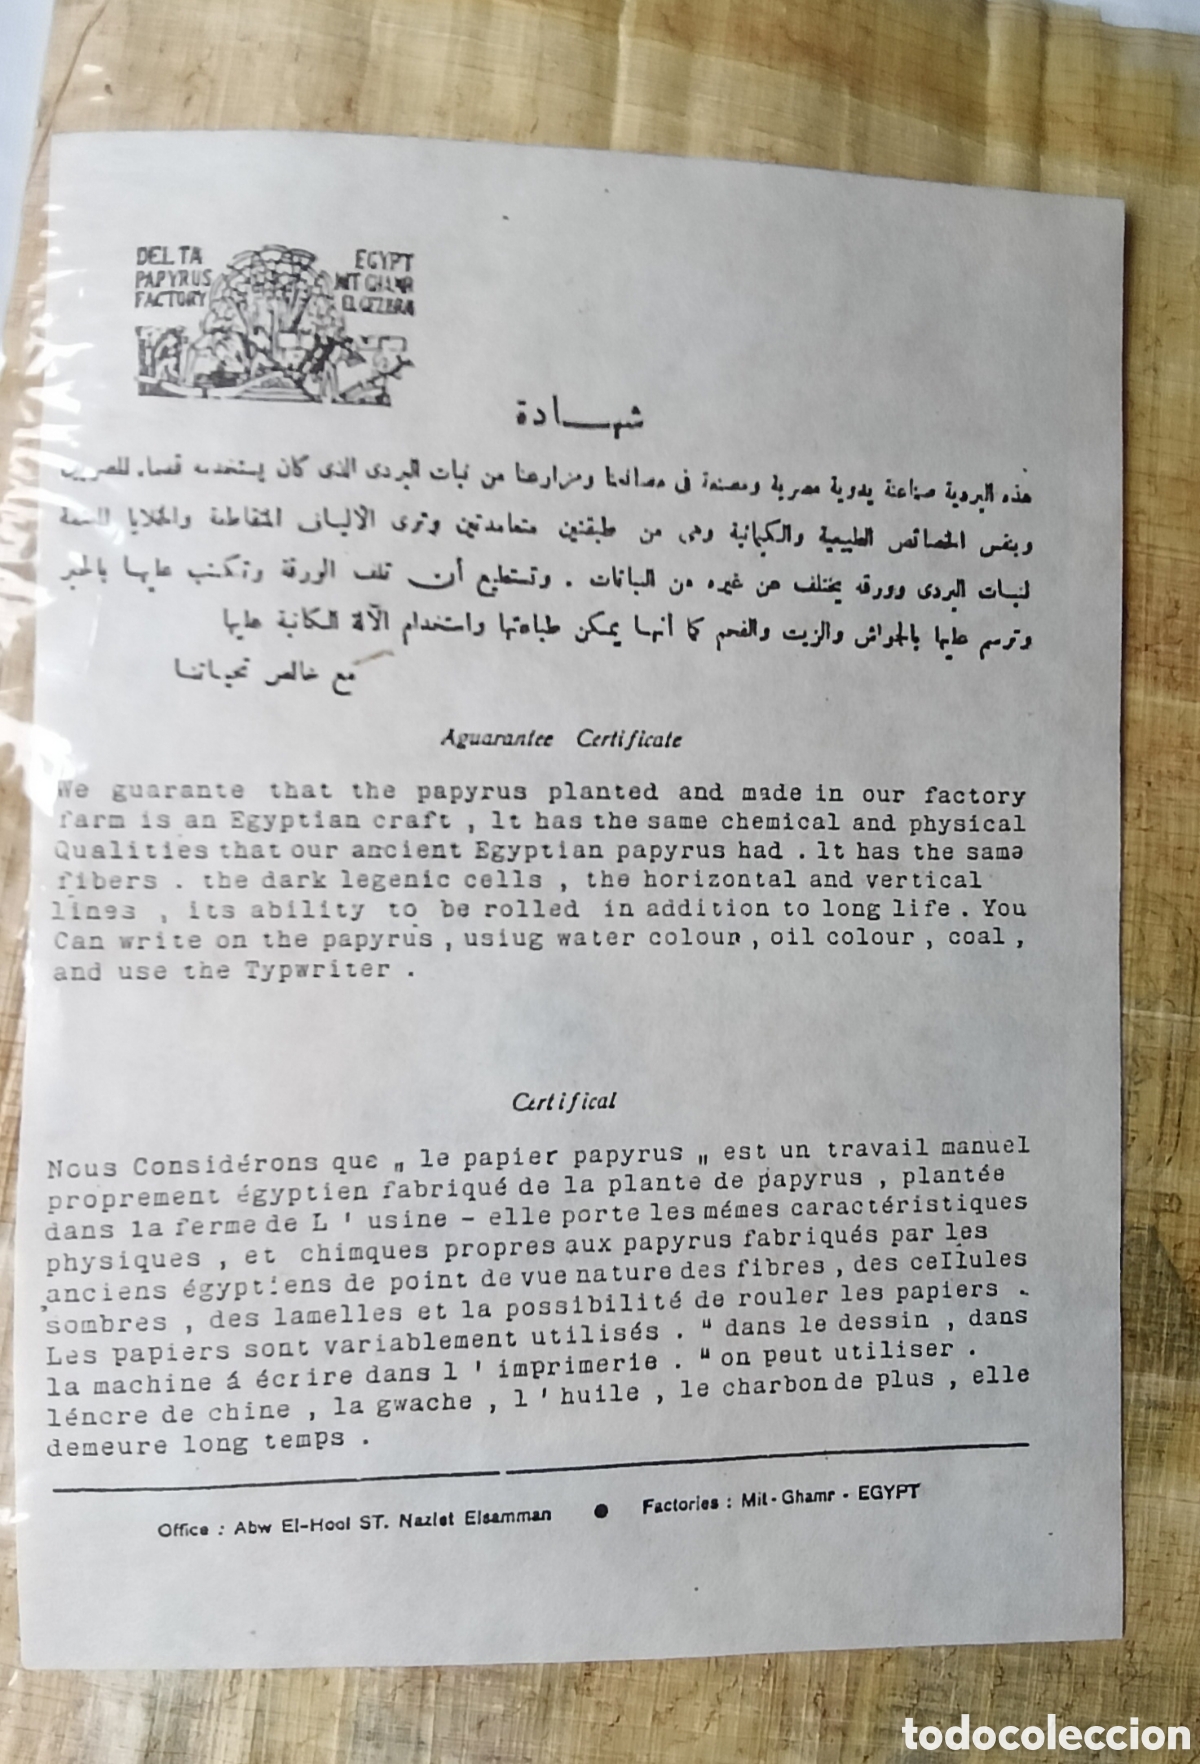 DELTA
PAPYRUS
FACTORY
EGYPT
MIT GHAMR
EL GEZERA
شهادة
هذه البردية صناعة يدوية مصرية ومصنعة فى مصانعنا ومزارعنا من نبات البردى الذى كان يستخدمه قدماء
وبنفس الخصائص الطبيعية والكيمائية وهى من طبقتين متعامدتين وترى الألياف المتقاطعة والخلايا
لنبات البردى وورقه يختلف عن غيره من النباتات . وتستطيع أن تلف الورقة وتكتب عليها بالحبر
وترسم عليها بالجواش والزيت والفحم كما أنها يمكن طباعتها واستخدام الآلة الكاتبة عليها
مع خالص تحياتنا
Aguarantee Certificate
We guarante that the papyrus planted and made in our factory
farm is an Egyptian craft , lt has the same chemical and physical
Qualities that our ancient Egyptian papyrus had . lt has the same
fibers . the dark legenic cells , the horizontal and vertical
lines , its ability to be rolled in addition to long life . You
Can write on the papyrus , usiug water colour , oil colour , coal ,
and use the Typwriter .
Certifical
Nous Considérons que „ le papier papyrus „ est un travail manuel
proprement égyptien fabriqué de la plante de papyrus , plantée
dans la ferme de L ' usine - elle porte les mémes caractéristiques
physiques , et chimques propres aux papyrus fabriqués par les
anciens égyptiens de point de vue nature des fibres , des cellules
sombres , des lamelles et la possibilité de rouler les papiers .
Les papiers sont variablement utilisés . " dans le dessin , dans
la machine á écrire dans l ' imprimerie . " on peut utiliser .
léncre de chine , la gwache , l ' huile , le charbon de plus , elle
demeure long temps .
Office : Abw El-Hool ST. Nazlet Elsamman ● Factories : Mit - Ghamr - EGYPT
todocoleccion